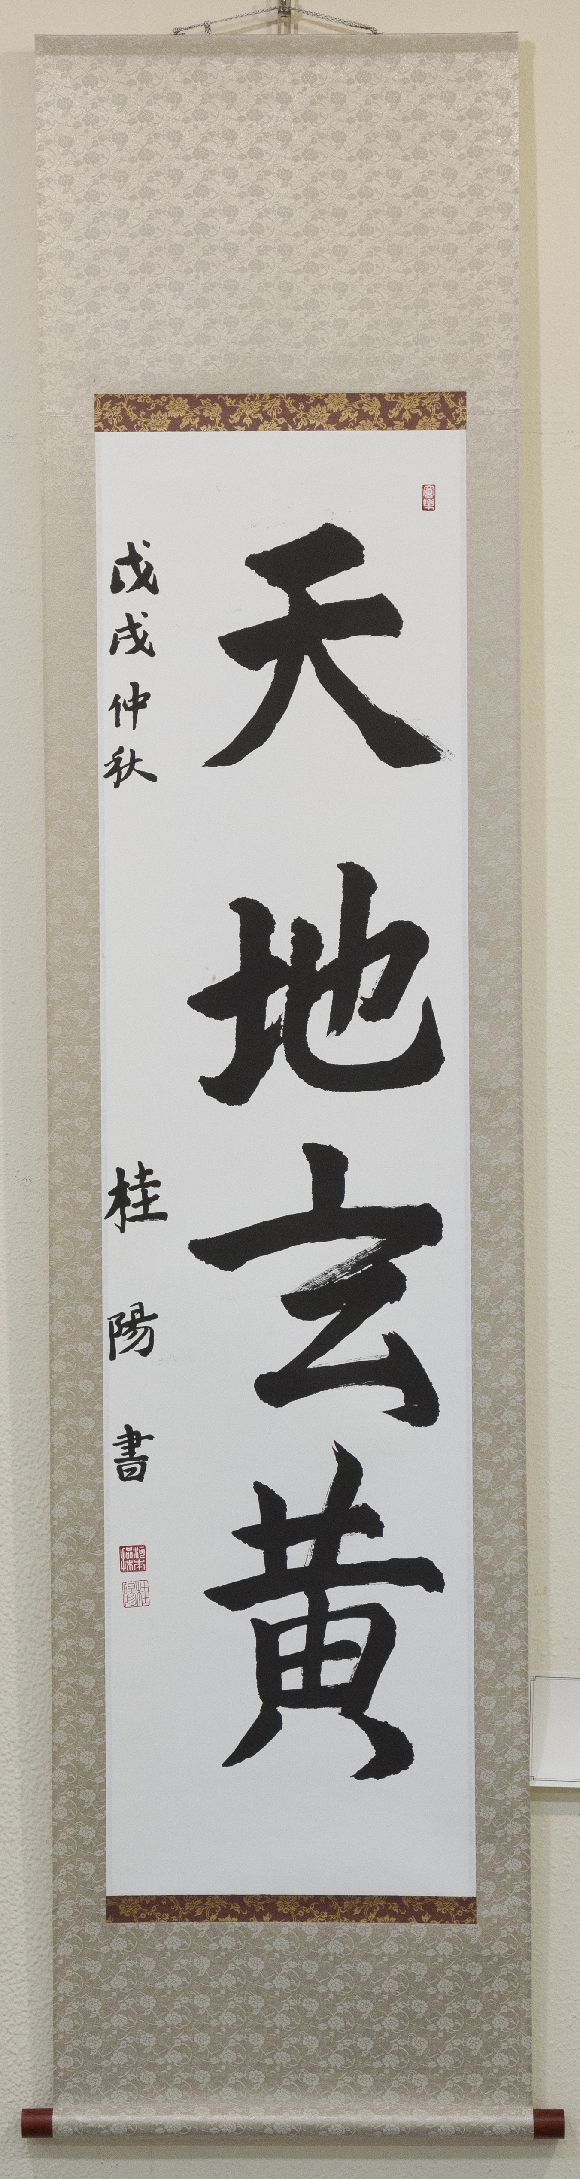 天地玄黄
戊戌仲秋
桂陽書